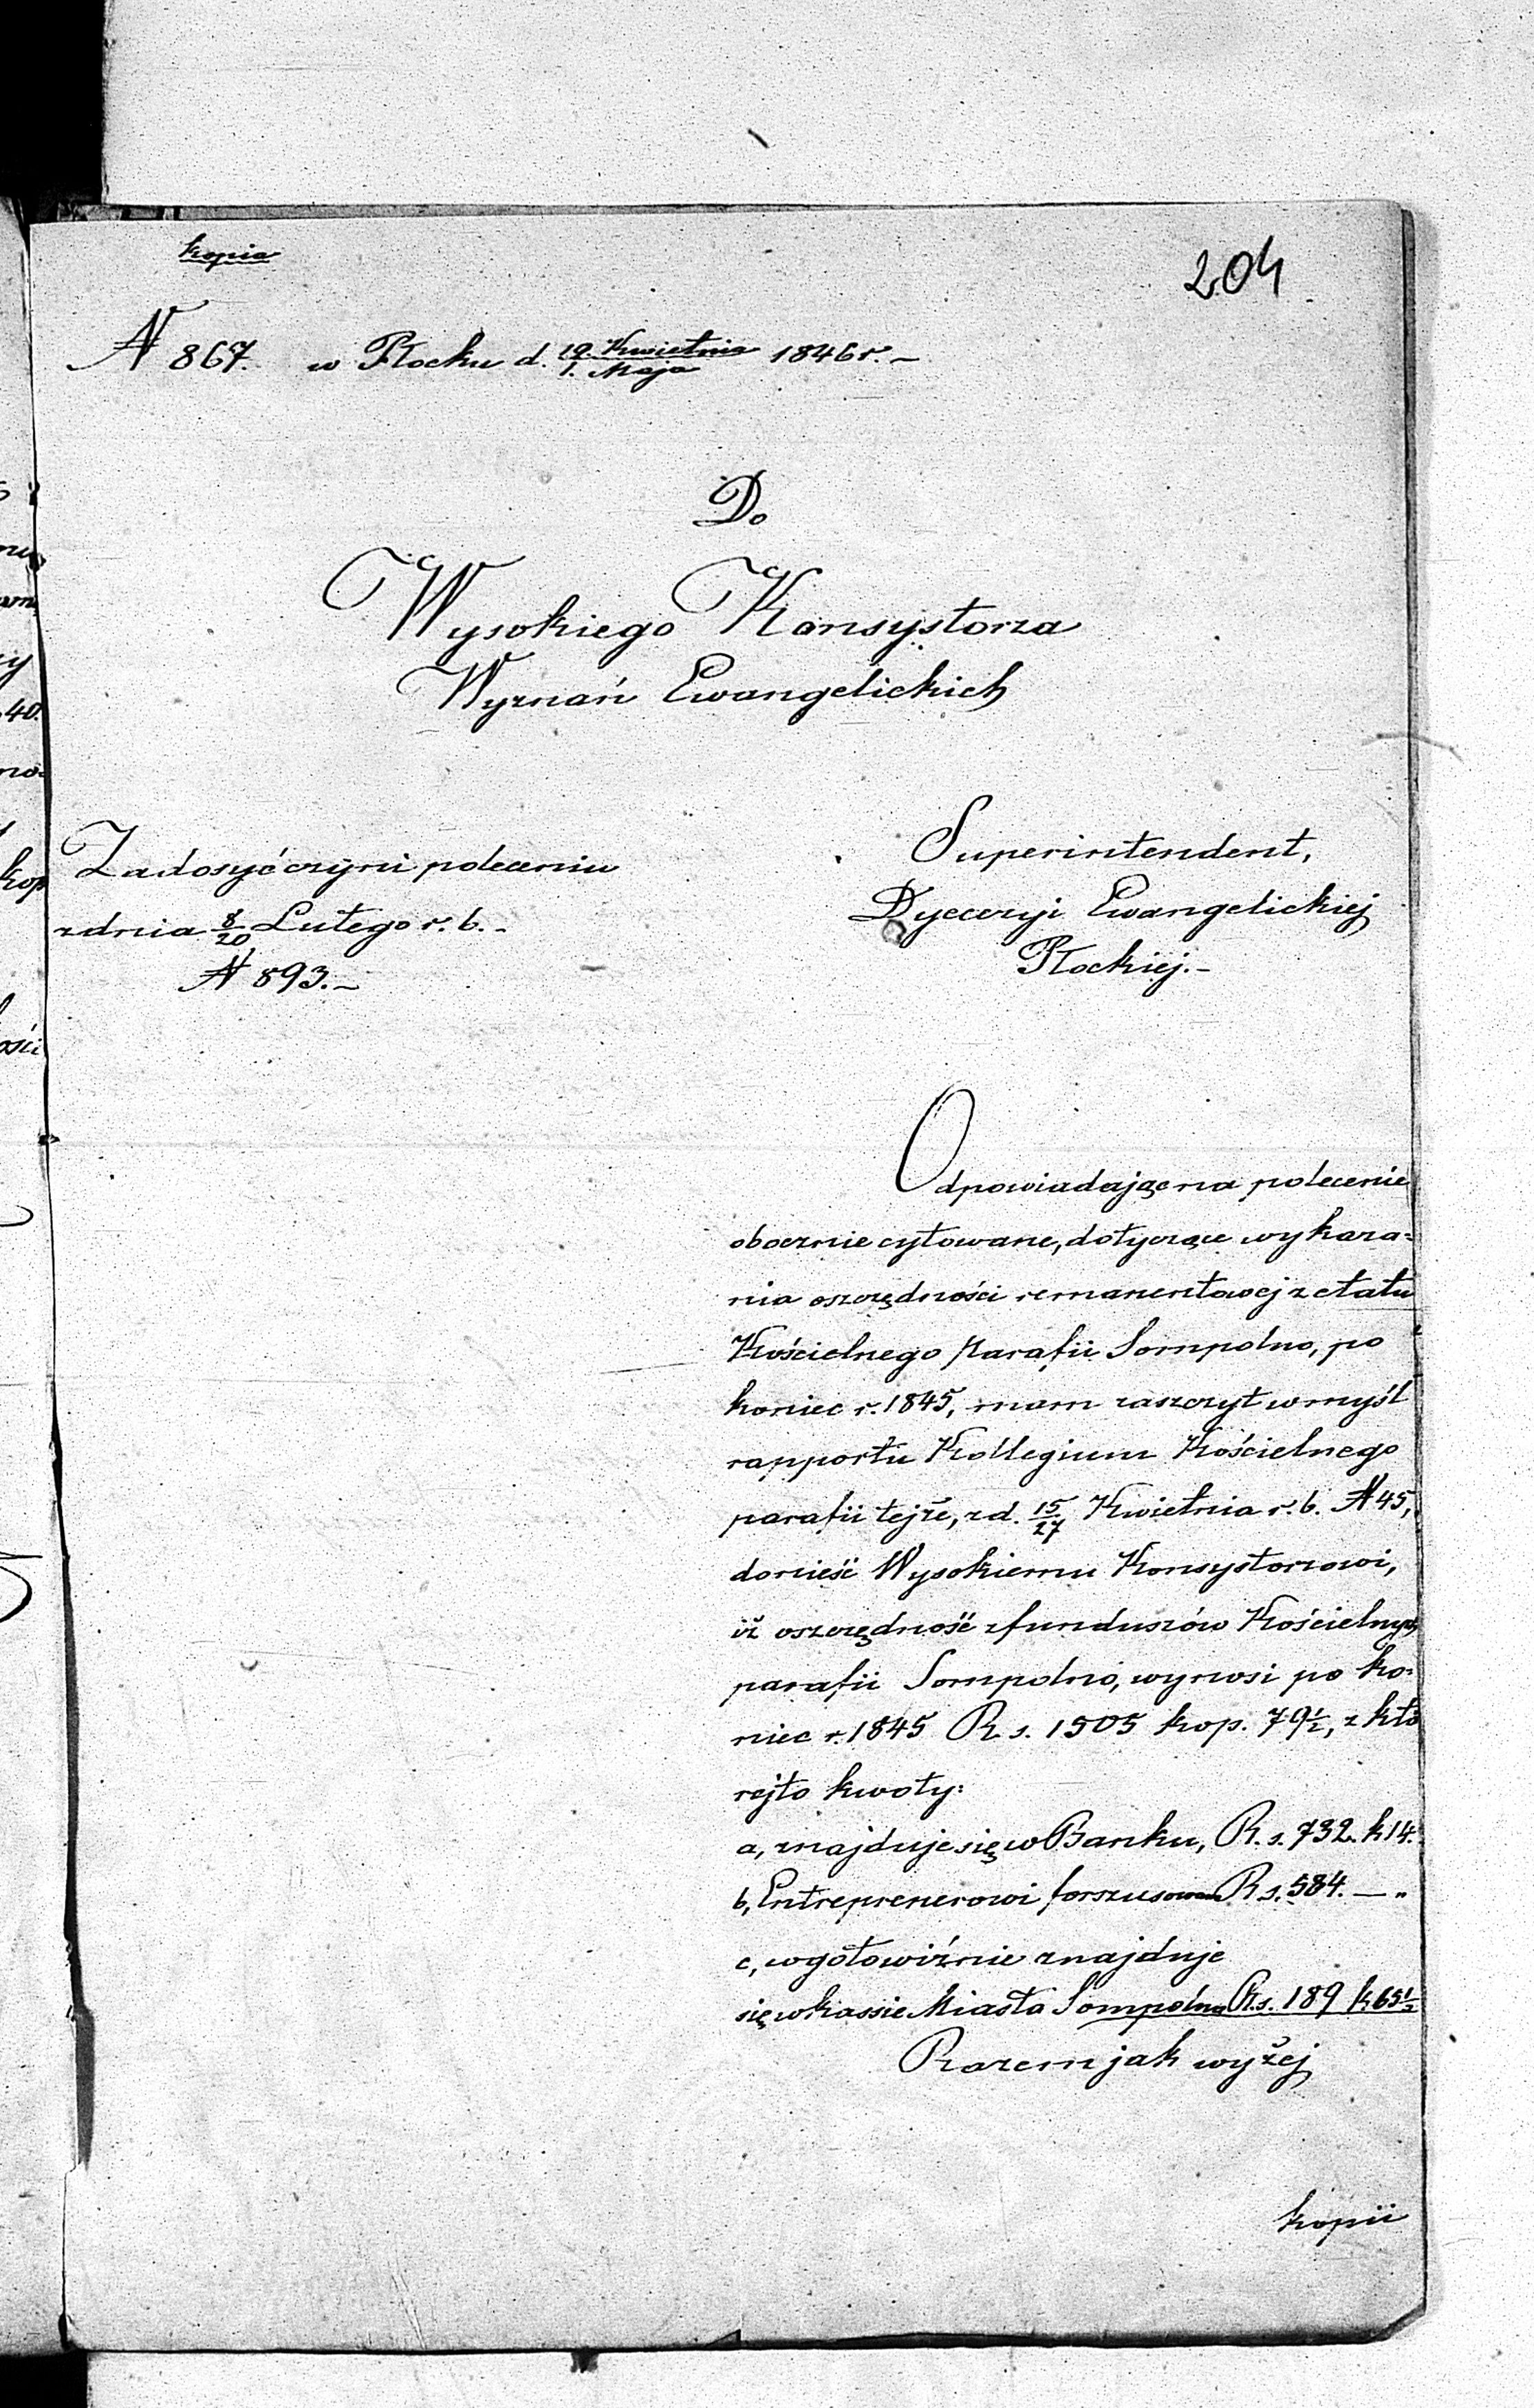 kopia
204
N 867. w Płocku d. 19. Kwietnia / 1. Maja 1846 r. –
Do
Wysokiego Konsystorza
Wyznań Ewangelickich
Zadosyć czyni poleceniu
z dnia 8/20 Lutego r. b. –
N 893. –
Superintendent,
Dyecezyi Ewangelickiej
Płockiej. –
Odpowiadając na polecenie
obocznie cytowane, dotyczące wykaza=
nia oszczędności remanentowej z etatu
Kościelnego Parafii Sompolno, po
koniec r. 1845, mam zaszczyt w myśl
rapportu Kollegium Kościelnego
parafii tejże, z d. 15/27 Kwietnia r. b. N 45,
donieść Wysokiemu Konsystorzowi,
iż oszczędność z funduszów Kościelnych
parafii Sompolno, wynosi po ko=
niec r. 1845 R. s. 1505 kop. 79½, z któ
rejto kwoty:
a, znajduje się w Banku, R. s. 732. k 14.
b, Entreprenerowi forszusowano R s. 584. — "
c, w gotowiźnie znajduje
się w kassie Miasta Sompolna R. s. 189 k 65½
Razem jak wyżej
kopii